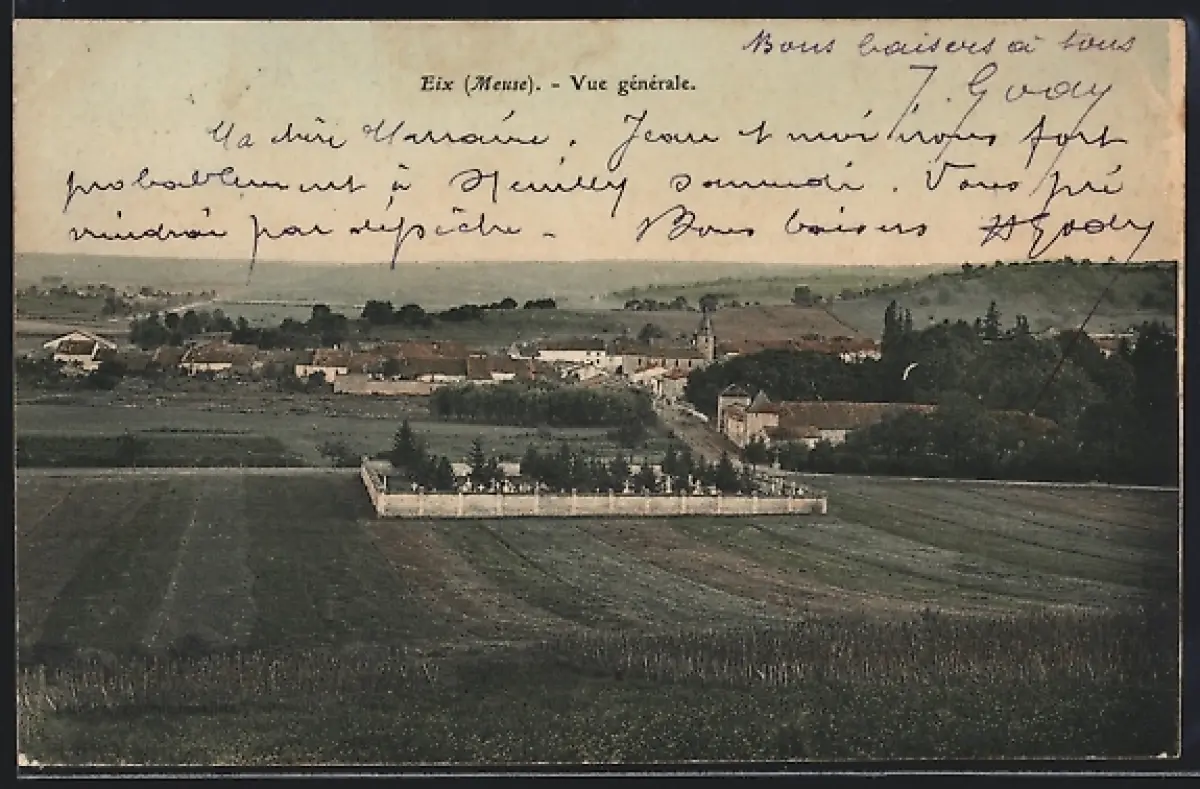 Bons baisers à tous
J. Gody
Eix (Meuse). - Vue générale.
Ma chère Marraine. Jean et moi irons fort
probablement à Neuilly samedi. Vous pré
viendrai par dépêche. Bons baisers HGody